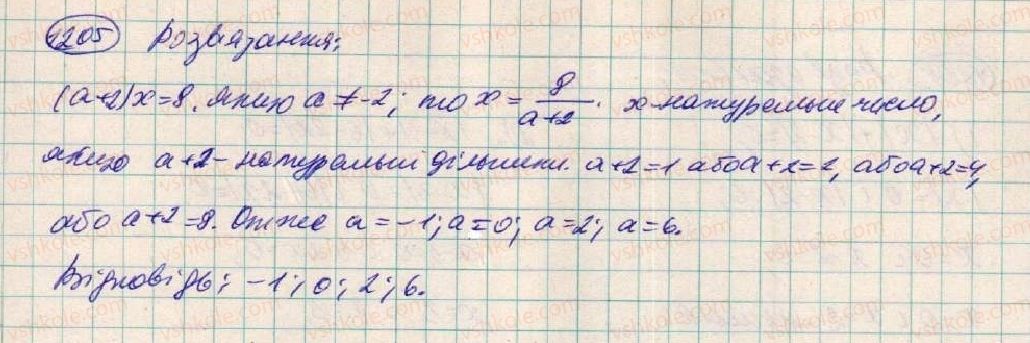 1205 Розв'язання:
(a+2)x=8. Якщо a ≠ -2; то x = 8/(a+2). x-натуральне число,
якщо a+2 - натуральні дільники. a+2=1 або a+2=2, або a+2=4,
або a+2=8. Отже a = -1; a=0; a=2; a=6.
Відповідь: -1; 0; 2; 6.